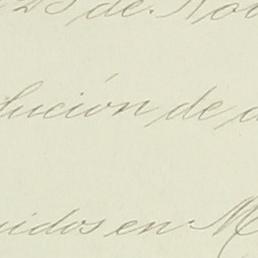 25 de Nov
lución de d
uidos en M